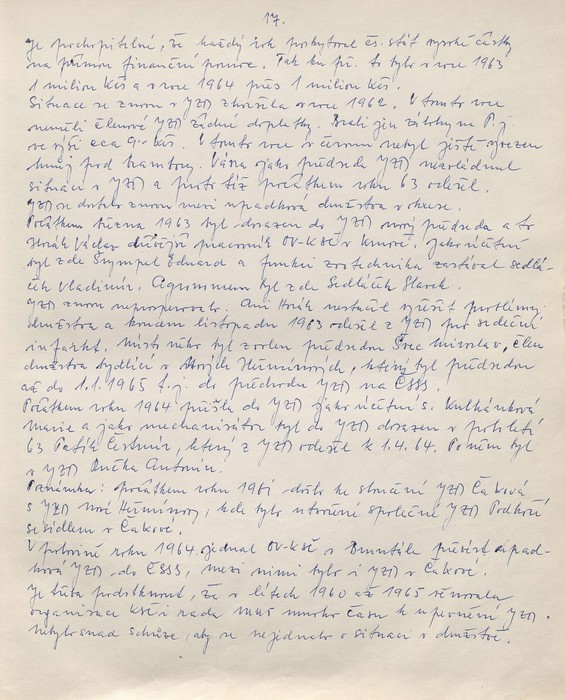 17.
Je pochopitelné, že každý rok poskytoval čs. stát vysoké částky
na přímou finanční pomoc. Tak ku př. to bylo v roce 1963
1 milion Kčs a v roce 1964 přes 1 milion Kčs.
Situace se znovu v JZD zhoršila v roce 1962. V tomto roce
neměli členové JZD žádné doplatky. Brali jen zálohy na P.j.
ve výši cca 9.- Kčs. V tomto roce v červnu nebyl ještě vyvezen
hnůj pod brambory. Vána jako předseda JZD nezvládnul
situaci v JZD a proto též počátkem roku 63 odešel.
JZD se dostalo znovu mezi úpadková družstva v okrese.
Počátkem března 1963 byl dosazen do JZD nový předseda a to
Horák Václav dřívější pracovník OV-KSČ v Krnově. Jako účetní
byl zde Šympel Eduard a funkci zootechnika zastával Sedlá-
ček Vladimír. Agronomem byl zde Sedláček Slavek.
JZD znovu neprosperovalo. Ani Horák nestačil vyřešit problémy
družstva a koncem listopadu 1963 odešel z JZD pro srdeční
infarkt. Místo něho byl zvolen předsedou Švec Miroslav, člen
družstva bydlící v Nových Heřminovech, který byl předsedou
až do 1.1.1965 t.j. do přechodu JZD na ČSSS.
Počátkem roku 1964 přišla do JZD jako účetní s. Kulhánková
Marie a jako mechanizátor byl do JZD dosazen v pololetí
63 Pafík Čestmír, který z JZD odešel k 1.4.64. Po něm byl
v JZD Antonín.
Poznámka: počátkem roku 1961 došlo ke sloučení JZD Čaková
s JZD Nové Heřminovy, kde bylo utvořené společné JZD Podhoří
se sídlem v Čakové.
V polovině roku 1964 jednal OV-KSČ v Bruntále převést úpad-
ková JZD do ČSSS, mezi nimi bylo i JZD v Čakové.
Je třeba podotknout, že v létech 1960 až 1965 věnovala
organizace KSČ i rada MNV mnoho času k upevnění JZD.
Nebylo snad schůze, aby se nejednalo o situaci v družstvě.